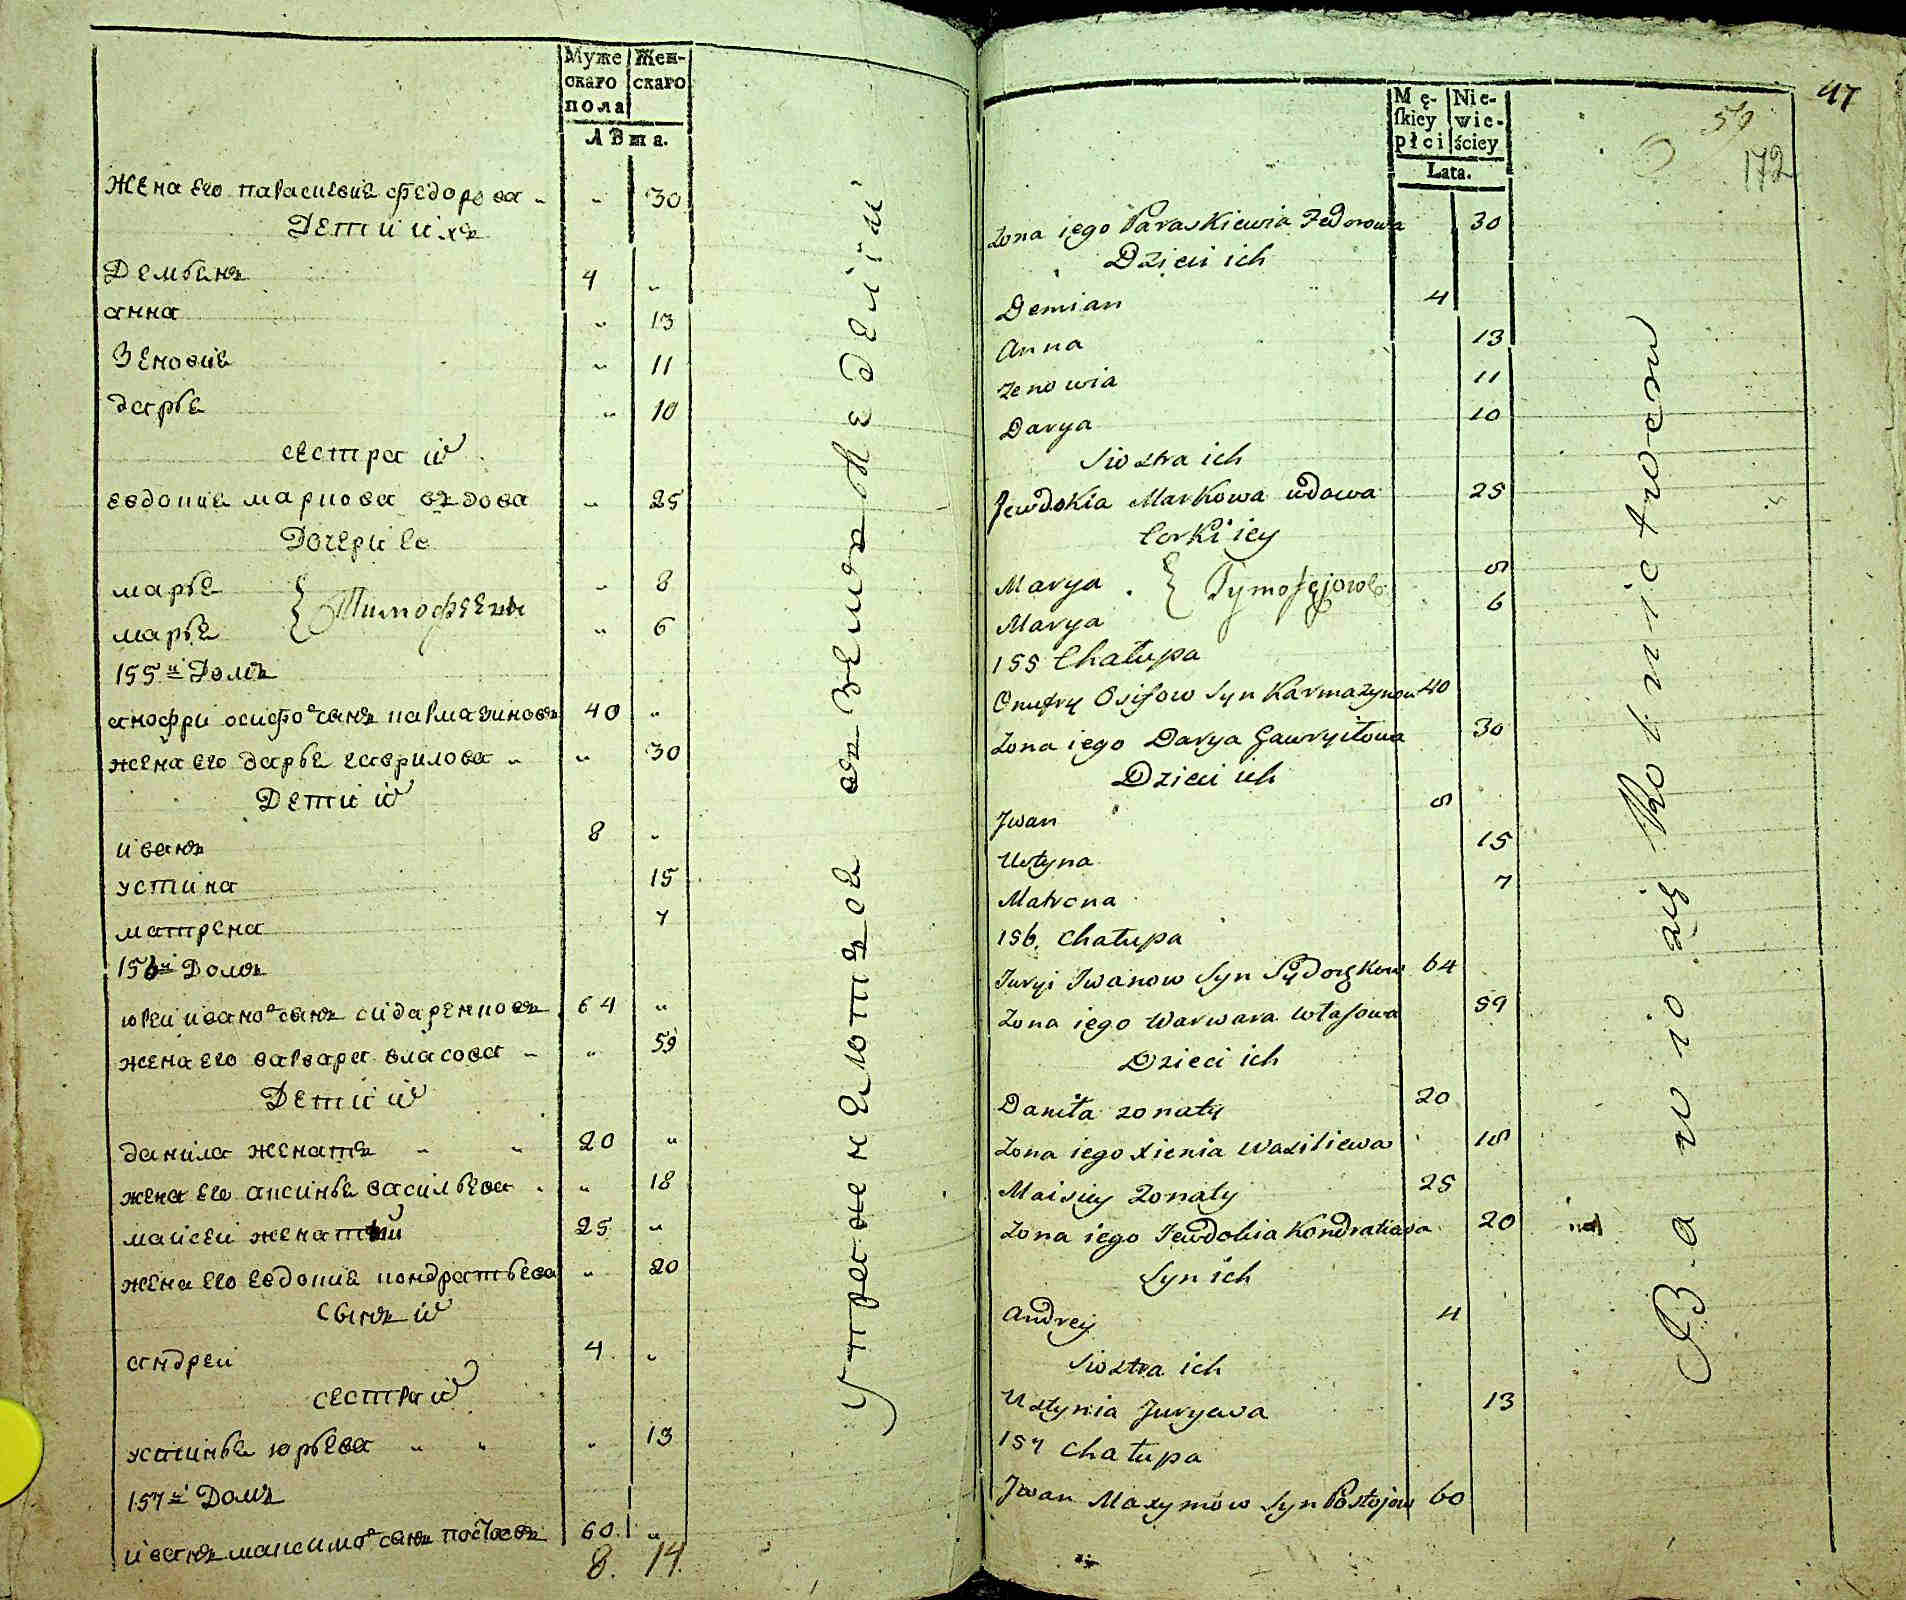 Муже Жен-
скаго скаго
пола
лѣта.
жена его параскевие федорова " " 30
Дети ихъ
Демьянъ 4 "
анна " 13
Зеновие " 11
дарье " 10
сестра их
евдокие маркова вдова " 25
Дочери ее
марье " 8
Тимофеевы
марье " 6
155й Домъ
анофри осифовъ сынъ кармазиновъ 40 "
жена его дарье гаврилова " " 30
Дети их
иванъ 8 "
устина 15
матрена 7
156й Домъ
юреи ивановъ сынъ сидаренковъ 64 "
жена его варвара власова " " 59
Дети их
данила женатъ " " 20 "
жена его аксинье васильева " " 18
майсеи женатый 25 "
жена его евдокие кондратьева " 20
Сынъ их
андреи 4 "
сестра их
устинье юрьева " " " 13
157й Домъ
иванъ максимовъ сынъ 60 "
8. 14.
упражняются въ земледелїи
47
59
172
Mę- Nie-
skiey wie-
płci ściey
Lata.
Żona iego Paraskiewia Fedorowa 30
Dzieci ich
Demian 4
Anna 13
Zenowia 11
Darya 10
Siostra ich
Jewdokia Markowa wdowa 25
Corki iey
Marya 8
Tymofiejowe
Marya 6
155 Chałupa
Onufry Osifow Syn Karmazynow 40
Żona iego Darya Gawryłowa 30
Dzieci ich
Jwan 8
Ustyna 15
Matrona 7
156. Chałupa
Juryi Jwanow Syn Sydorękow 64
Żona iego Warwara Własowa 59
Dzieci ich
Daniła zonaty 20
Żona iego Xienia Wasiliewa 18
Maisiey Żonaty 25
Żona iego Jewdokia Kondratiewa 20
Syn ich
Andrey 4
Siostra ich
Ustynia Juryewa 13
157 Chałupa
Jwan Maxymow Syn Postojow 60
Bawio się Rolnictwem